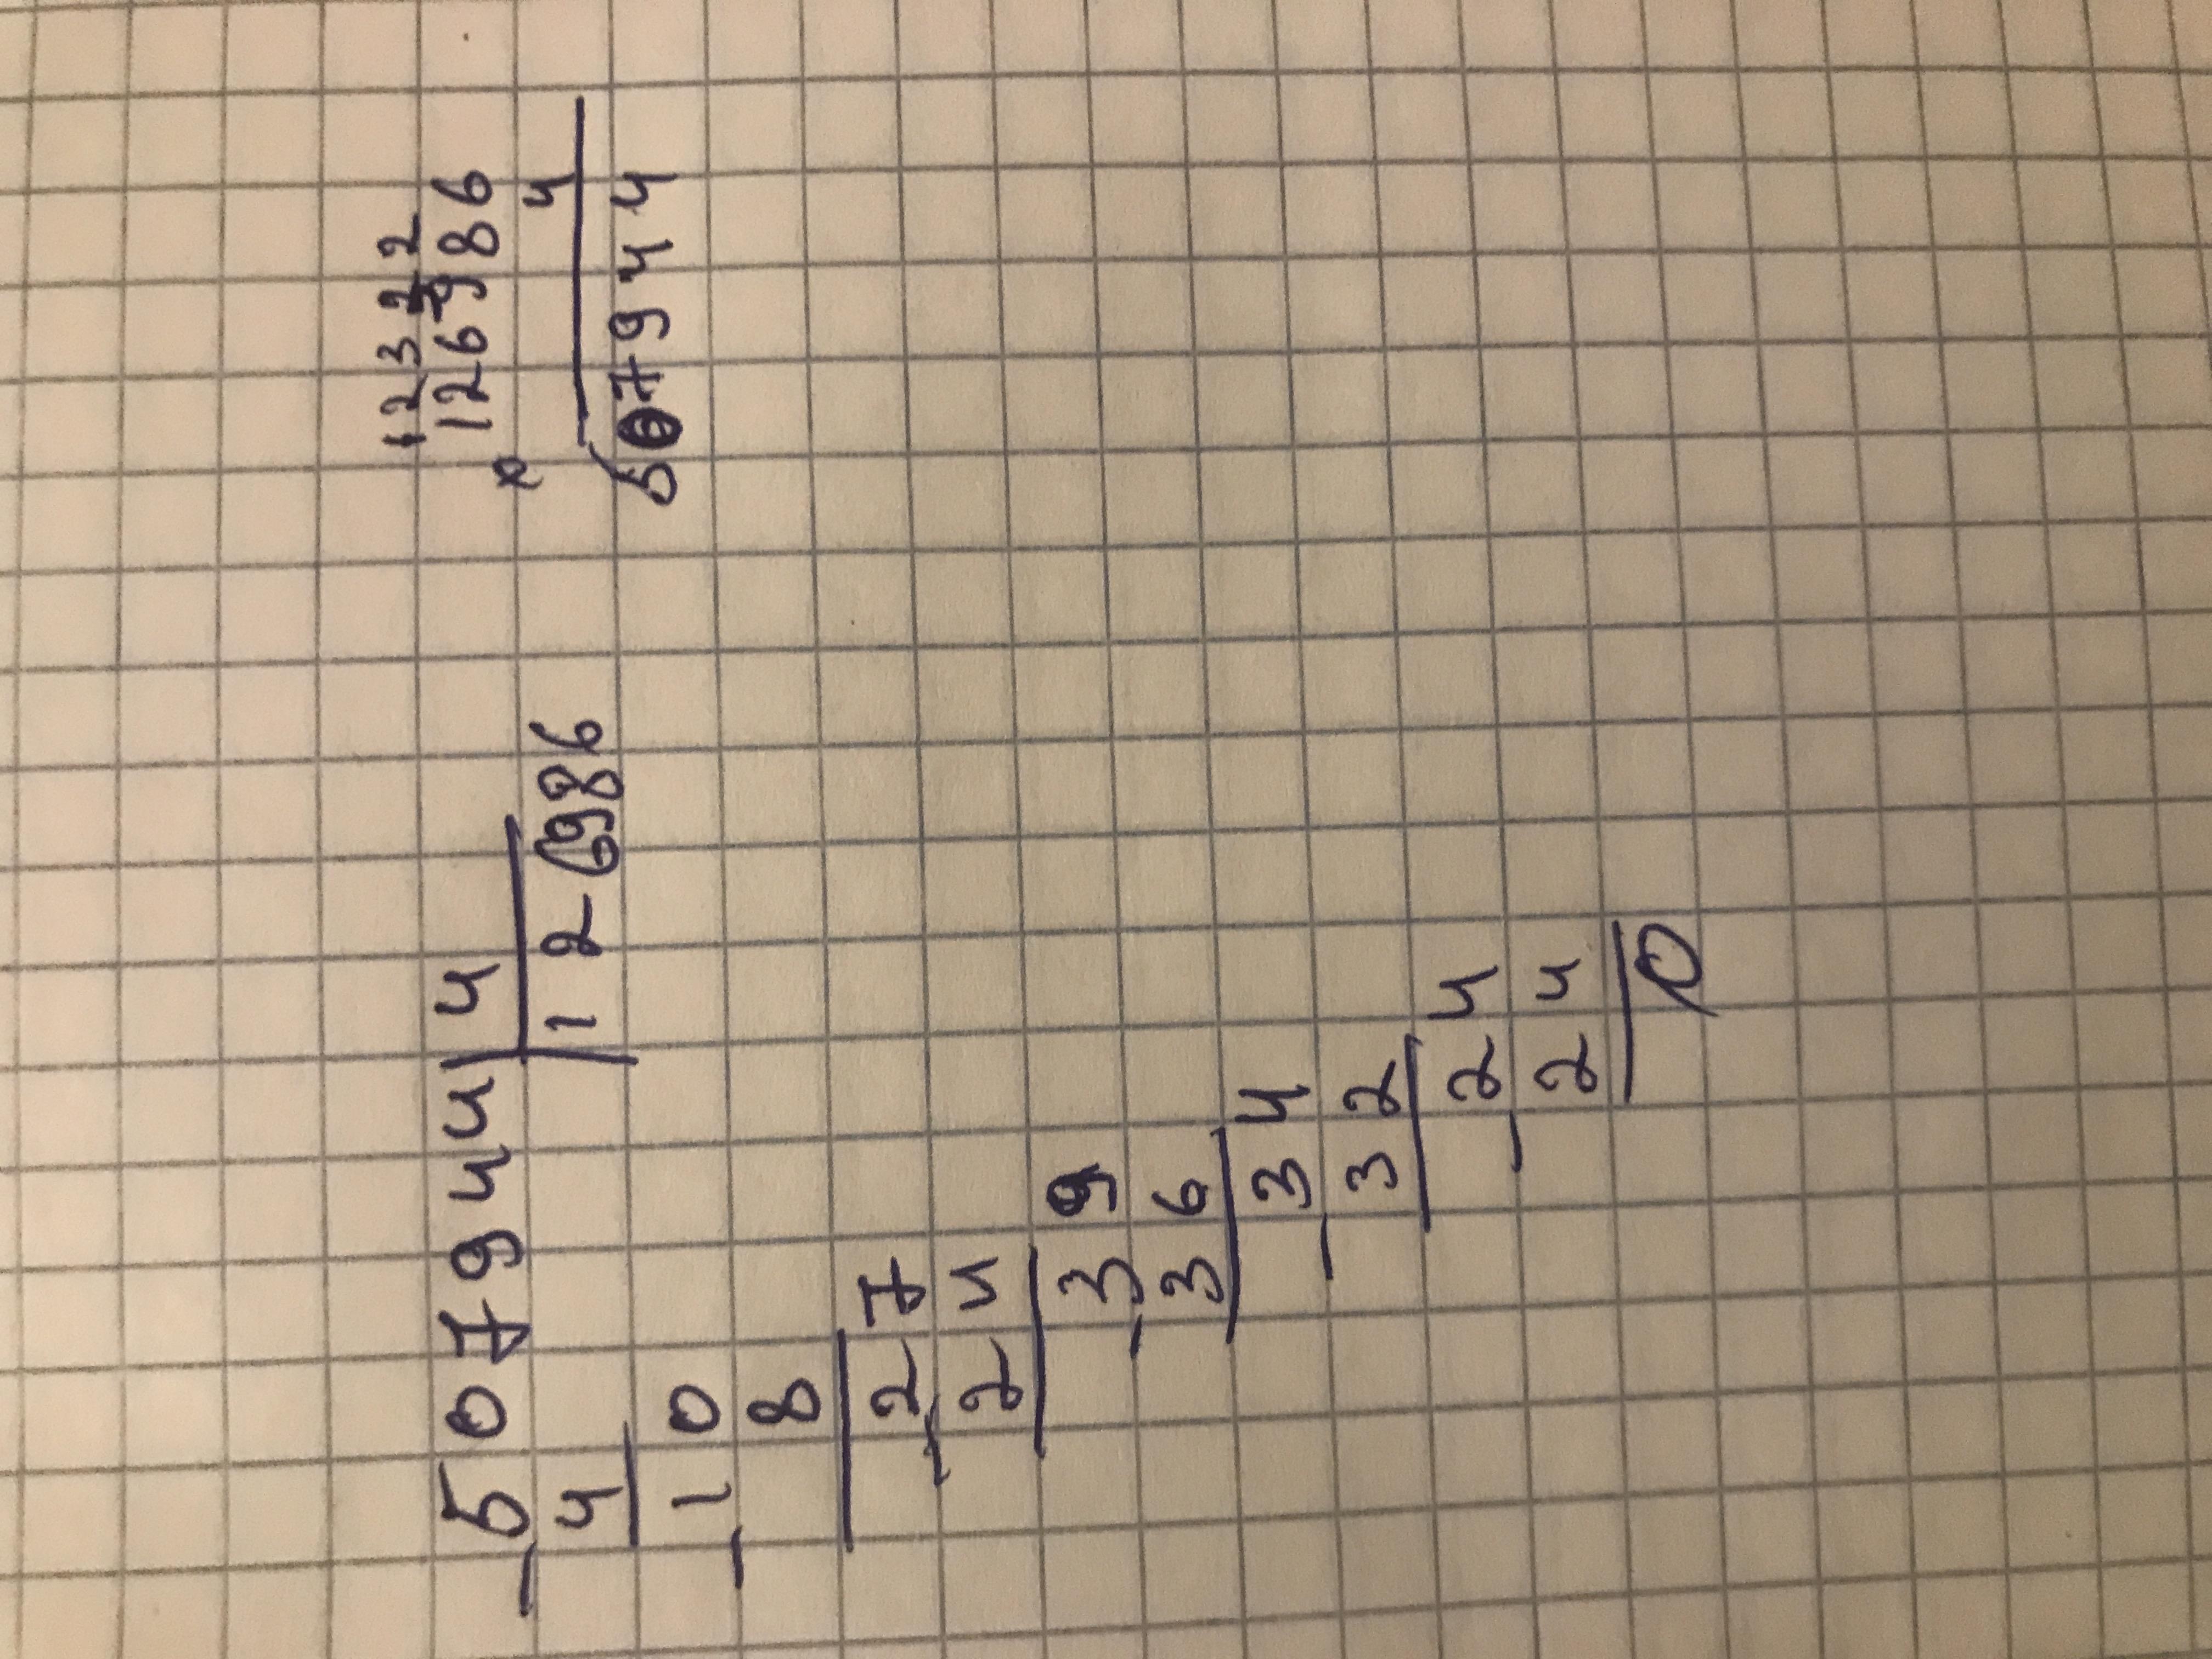 507944 4
4 126986
10
8
27
24
39
36
34
32
24
24
0
12322
126986
× 4
507944